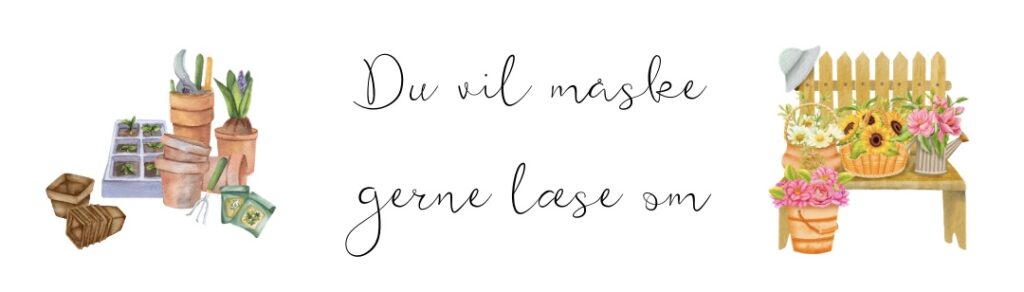 Du vil måske
gerne læse om